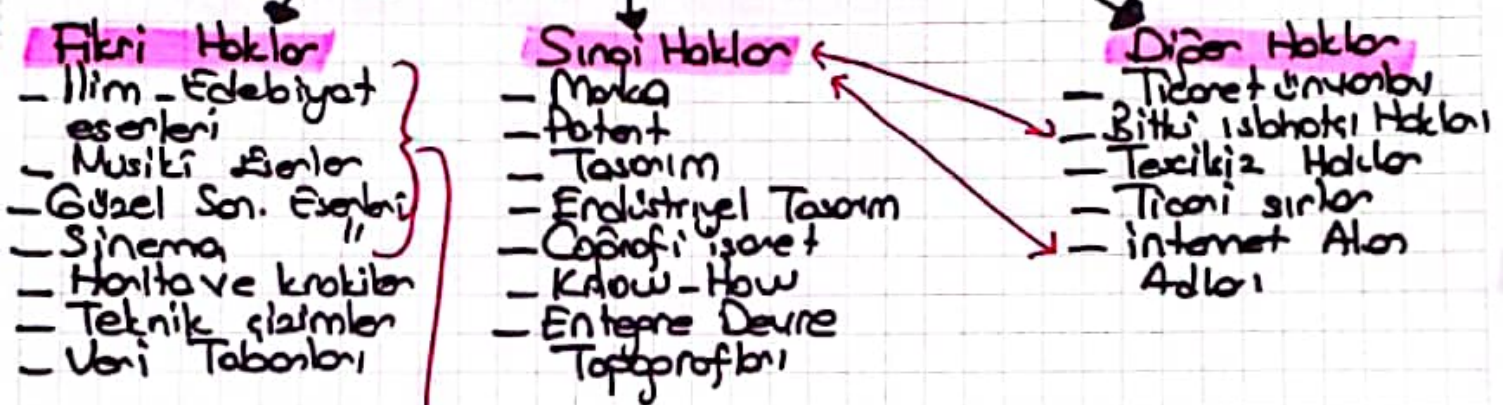 Fikri Haklar
- İlim - Edebiyat
eserleri
- Musiki Eserler
- Güzel San. Eserleri
- Sinema "
- Harita ve krokiler
- Teknik çizimler
- Veri Tabanları
Sınai Haklar
- Marka
- Patent
- Tasarım
- Endüstriyel Tasarım
- Coğrafi işaret
- Know-How
- Entegre Devre
Topografları
Diğer Haklar
- Ticaret ünvanları
- Bitki ıslahatçı Hakları
- Tescilsiz Haklar
- Ticari sırlar
- internet Alan
Adları